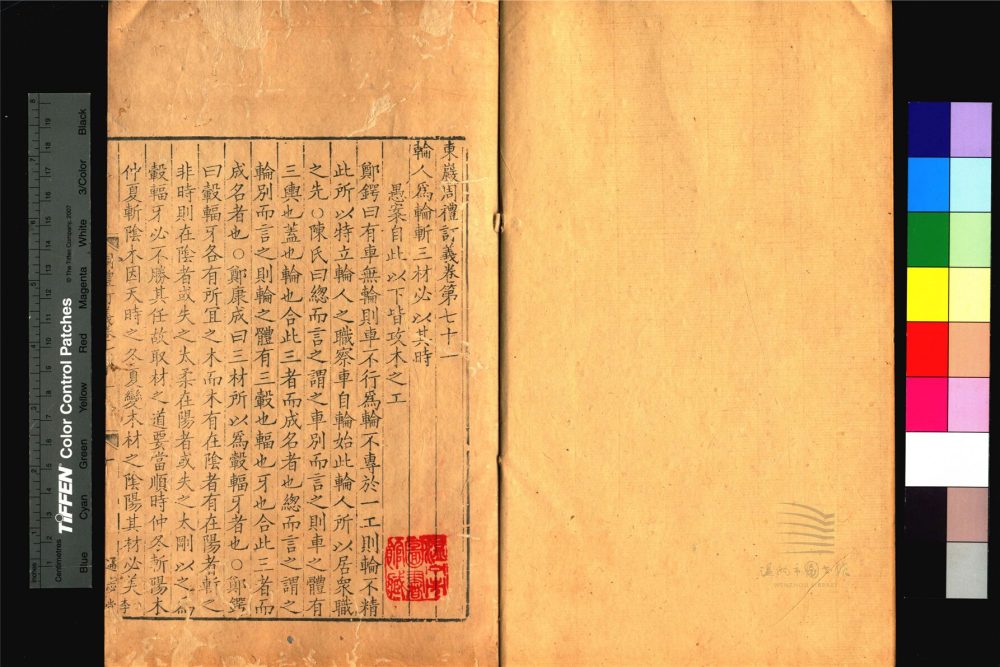 東巖周禮訂義卷第七十一
輪人爲輪斬三材必以其時
愚案自此以下皆攻木之工
鄭鍔曰有車無輪則車不行爲輪不專於一工則輪不精
此所以特立輪人之職察車自輪始此輪人所以居衆職
之先○陳氏曰緫而言之謂之車別而言之則車之體有
三輿也蓋也輪也合此三者而成名者也緫而言之謂之
輪別而言之則輪之體有三轂也輻也牙也合此三者而
成名者也○鄭康成曰三材所以爲轂輻牙者也○鄭鍔
曰轂輻牙各有所宜之木而木有在陰者有在陽者斬之
非時則在陰者或失之太柔在陽者或失之太剛以之爲
轂輻牙必不勝其任故取材之道要當順時仲冬斬陽木
仲夏斬陰木因天時之冬夏變木材之陰陽其材必美
李
通志堂
TIFFEN Color Control Patches
© The Tiffen Company, 2007
Inches
Centimetres
Blue
Cyan
Green
Yellow
Red
Magenta
White
3/Color
Black
WENZHOU LIBRARY